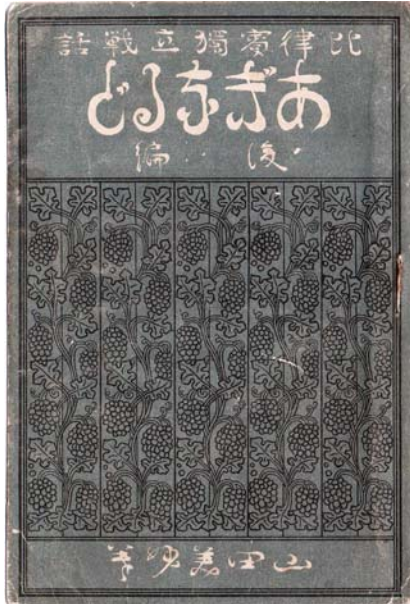 比律賓獨立戦話
あぎなるど
後編
山田美妙著